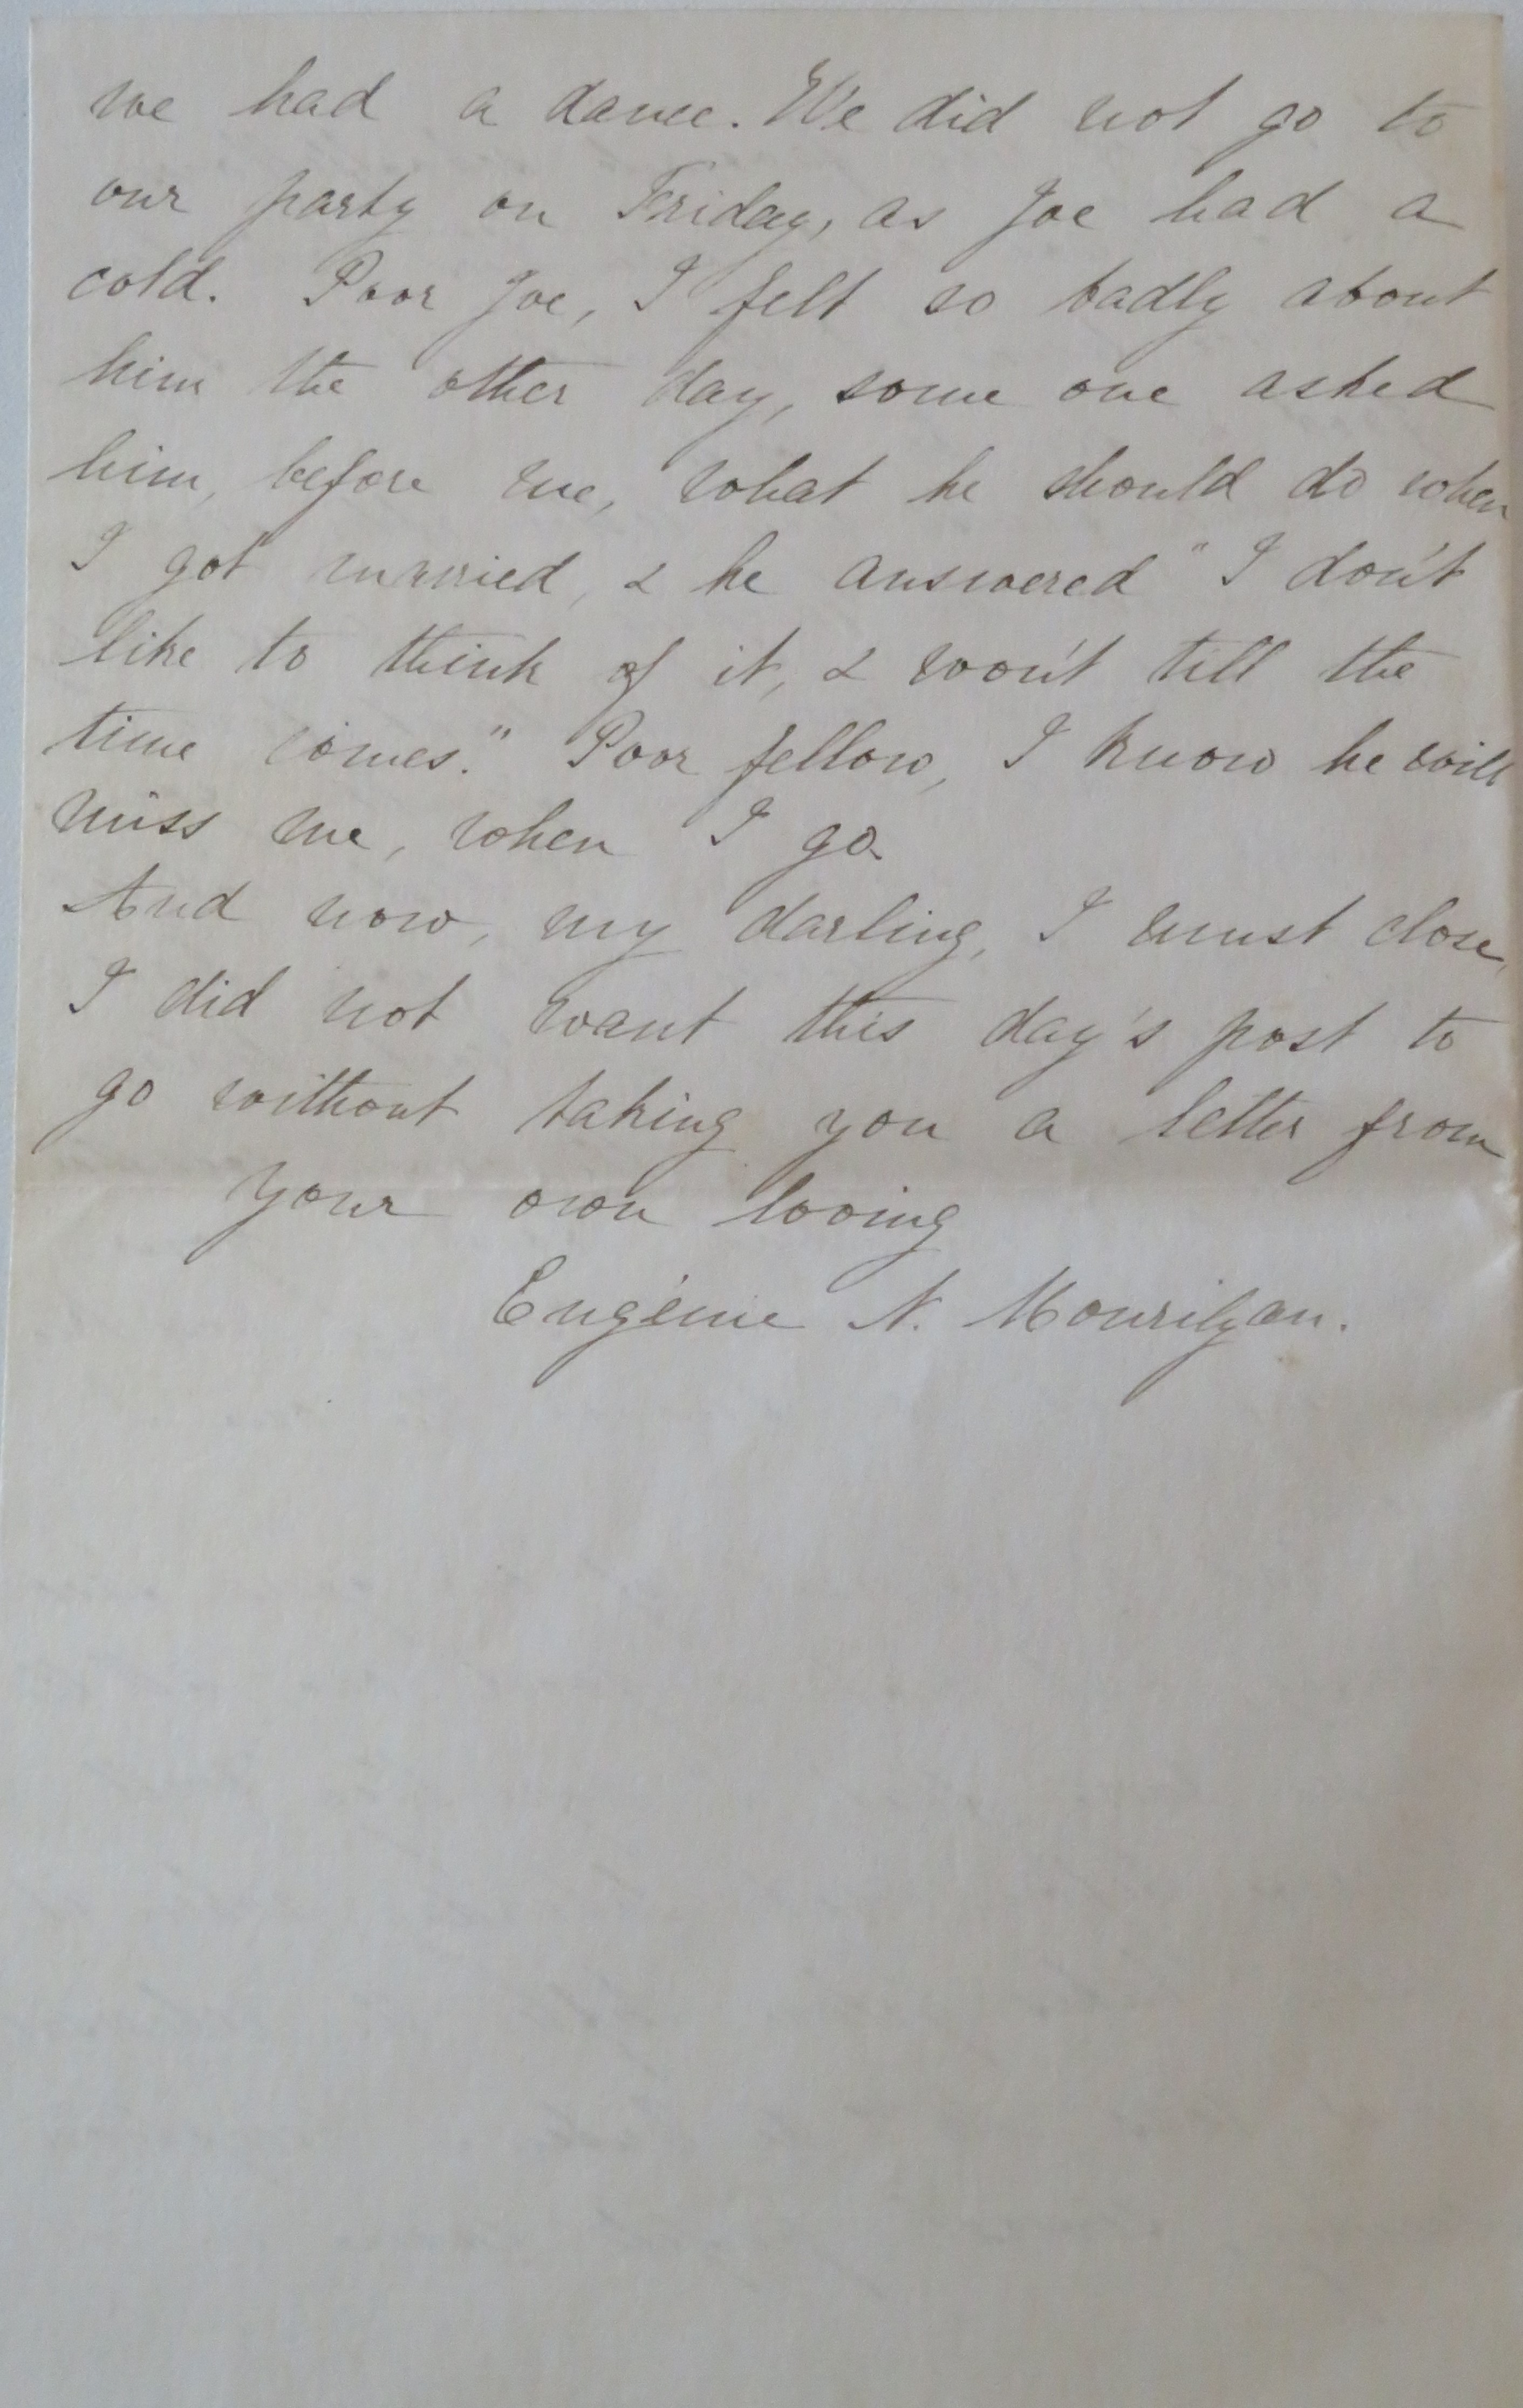 we had a dance. We did not go to
our party on Friday, as Joe had a
cold. Poor Joe, I felt so badly about
him the other day, some one asked
him, before me, what he should do when
I got married, & he answered "I don't
like to think of it, & won't till the
time comes." Poor fellow, I know he will
miss me, when I go
And now, my darling, I must close,
I did not want this day's post to
go without taking you a letter from
your own loving
Eugénie N. Mourilyan.